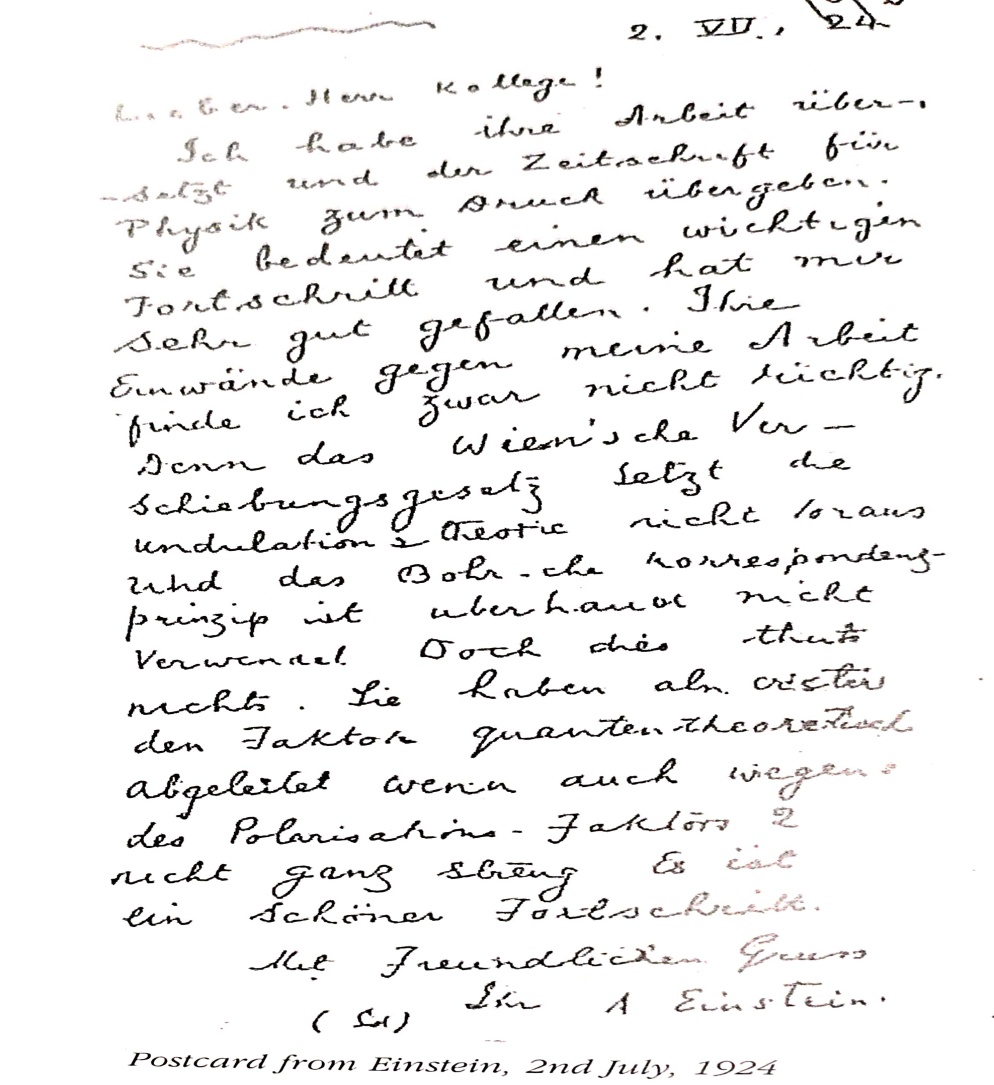 2. VII., 24
Lieber Herr Kollege!
Ich habe ihre Arbeit über-
setzt und der Zeitschrift für
Physik zum Druck übergeben.
Sie bedeutet einen wichtigen
Fortschritt und hat mir
sehr gut gefallen. Ihre
Einwände gegen meine Arbeit
finde ich zwar nicht richtig.
Denn das Wien'sche Ver-
schiebungsgesetz setzt die
undulations theorie nicht voraus
und das Bohr-che Korrespondenz-
prinzip ist uberhaupt nicht
Verwendet Doch dies thut
nichts. Sie haben als erster
den Faktor quanten-theoretisch
abgeleitet wenn auch wegen
des Polarisations-Faktors 2
nicht ganz streng Es ist
ein schöner Fortschritt.
Mit Freundlichen Gruss
Ihr A Einstein.
(Sd)
Postcard from Einstein, 2nd July, 1924